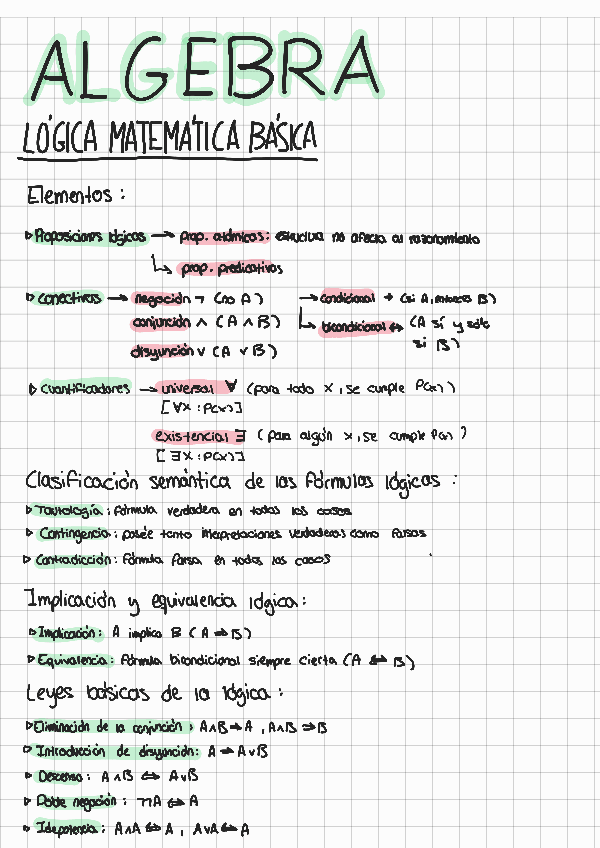 ALGEBRA
LÓGICA MATEMÁTICA BÁSICA
Elementos:
▷ Proposiciones lógicas → prop. atómicas: estructura no afecta al razonamiento
↳ prop. predicativas
▷ Conectivas → negación ¬ (no A) → condicional → (si A, entonces B)
conjunción ∧ (A ∧ B) ↳ bicondicional ↔ (A sí y sólo
disyunción ∨ (A ∨ B) si B)
▷ Cuantificadores → universal ∀ (para todo x, se cumple P(x))
[∀x : P(x)]
existencial ∃ (para algún x, se cumple P(x))
[∃x : P(x)]
Clasificación semántica de las fórmulas lógicas:
▷ Tautología: fórmula verdadera en todos los casos
▷ Contingencia: posée tanto interpretaciones verdaderas como falsas
▷ Contradicción: fórmula falsa en todos los casos
Implicación y equivalencia lógica:
▷ Implicación: A implica B (A ⇒ B)
▷ Equivalencia: fórmula bicondicional siempre cierta (A ⇔ B)
Leyes básicas de la lógica:
▷ Eliminación de la conjunción: A∧B ⇒ A, A∧B ⇒ B
▷ Introducción de disyunción: A ⇒ A∨B
▷ Descenso: A∧B ⇔ A∨B
▷ Doble negación: ¬¬A ⇔ A
▷ Idepotencia: A∧A ⇔ A, A∨A ⇔ A